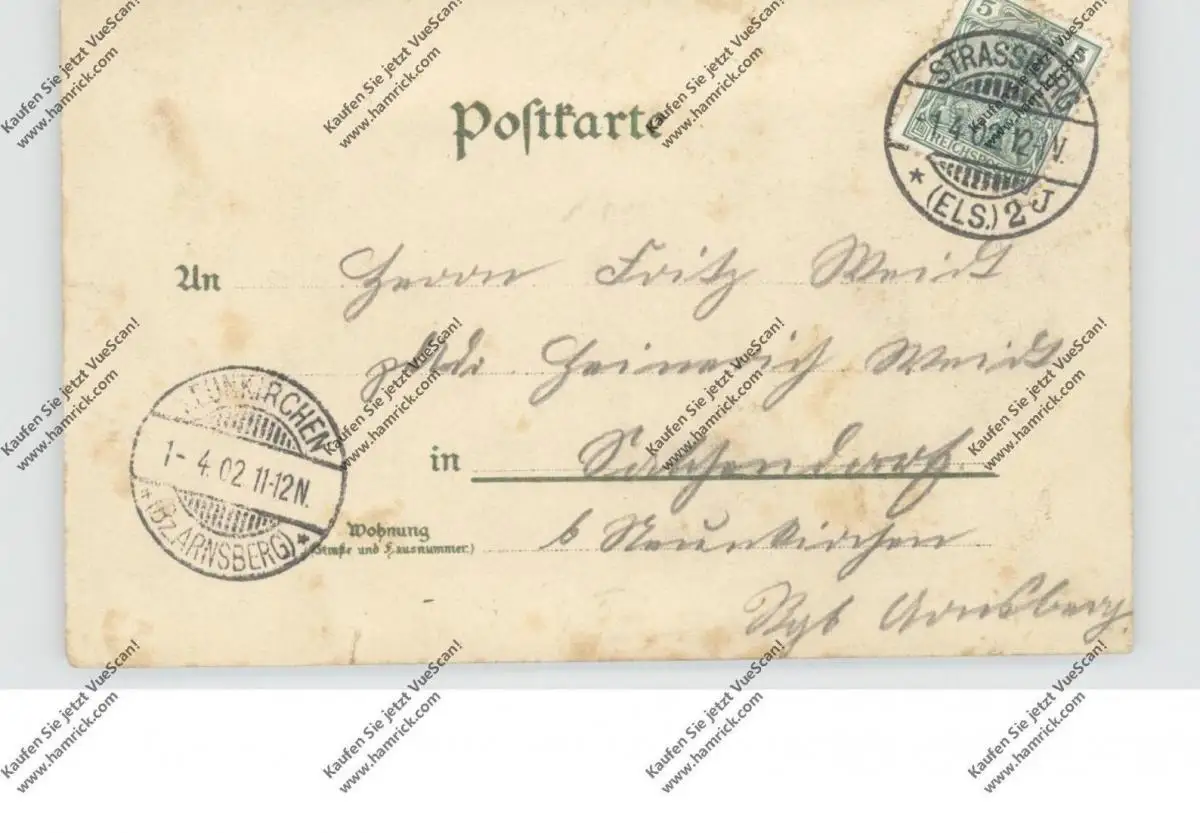 Postkarte
5
5
STRASSBURG
1.4.02.12-1N.
REICHSPOST
* (ELS.) 2 J
An Herrn Fritz Weidt
Heinerich Weidt
NEUNKIRCHEN
1-4.02 11-12N.
* (BZ.ARNSBERG) *
in
Wohnung
(Straße und Hausnummer.)
b Neunkirchen
Rgb Arnsberg
Kaufen Sie jetzt VueScan!
www.hamrick.com
Kaufen Sie jetzt VueScan!
www.hamrick.com
Kaufen Sie jetzt VueScan!
www.hamrick.com
Kaufen Sie jetzt VueScan!
www.hamrick.com
Kaufen Sie jetzt VueScan!
www.hamrick.com
Kaufen Sie jetzt VueScan!
www.hamrick.com
Kaufen Sie jetzt VueScan!
www.hamrick.com
Kaufen Sie jetzt VueScan!
www.hamrick.com
Kaufen Sie jetzt VueScan!
www.hamrick.com
Kaufen Sie jetzt VueScan!
www.hamrick.com
Kaufen Sie jetzt VueScan!
www.hamrick.com
Kaufen Sie jetzt VueScan!
www.hamrick.com